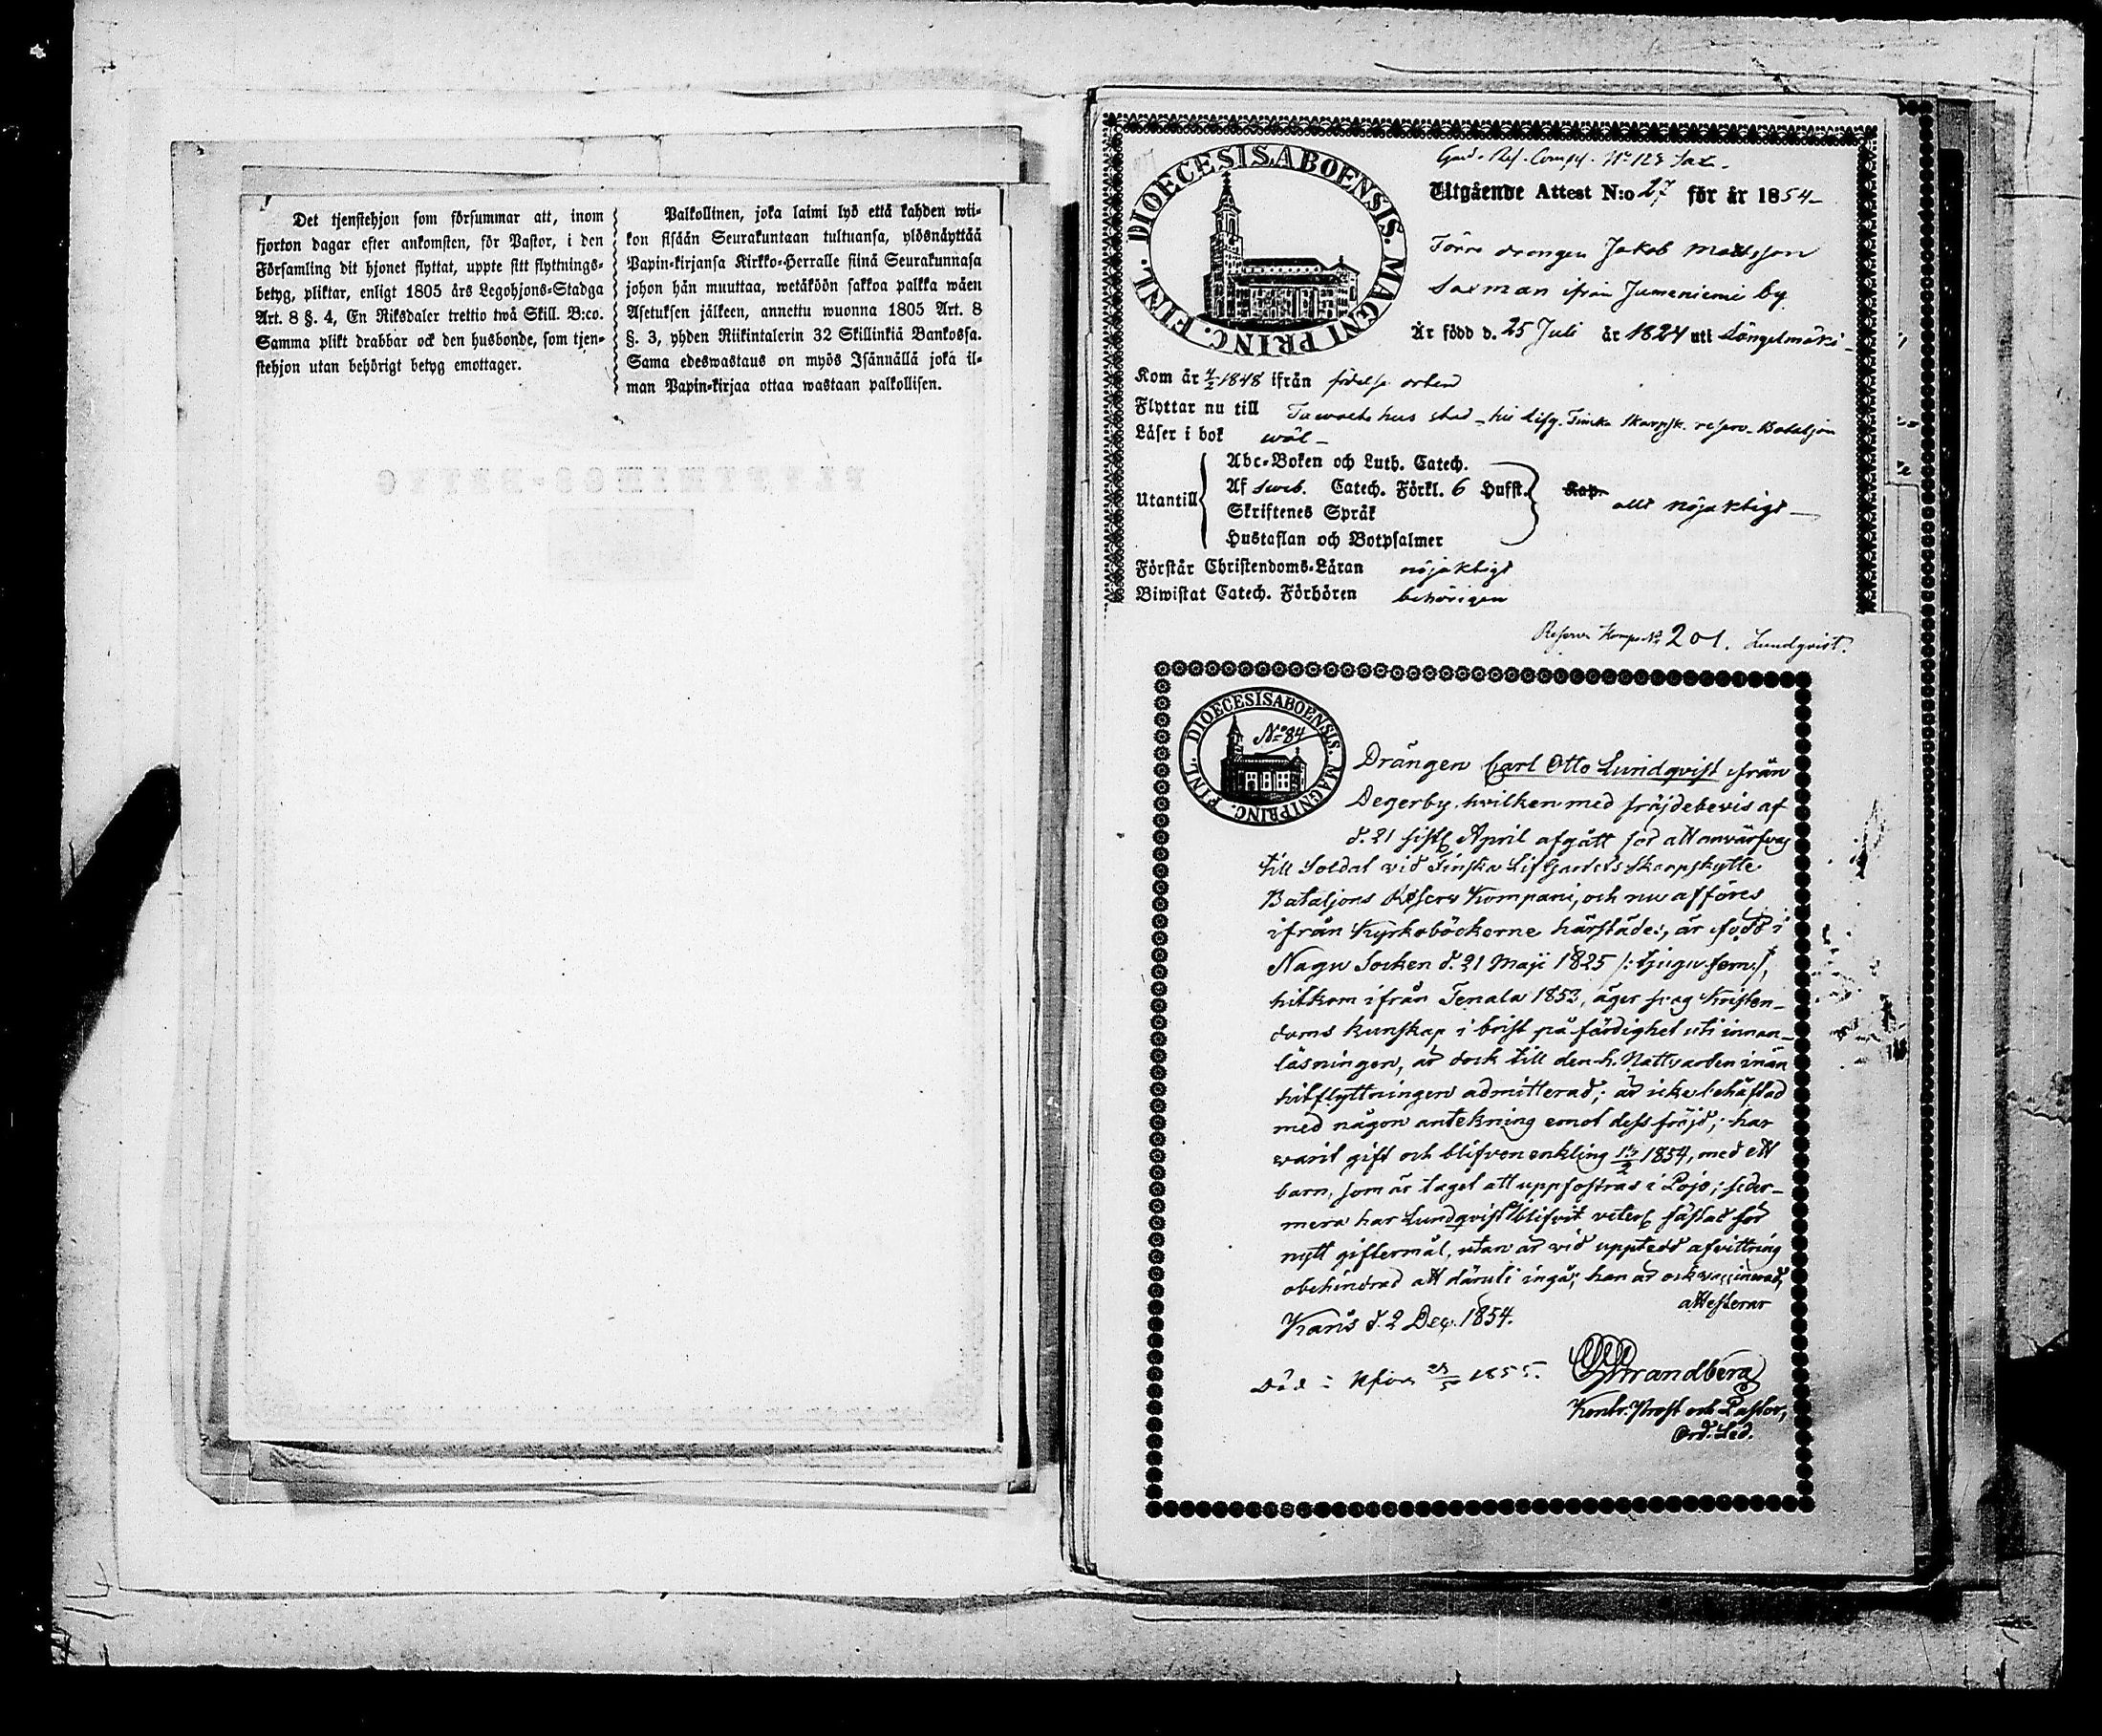 Det tjenstehjon som försummar att, inom
fjorton dagar efter ankomsten, för Pastor, i den
Församling dit hjonet flyttat, uppte sitt flyttnings-
betyg, pliktar, enligt 1805 års Legohjons-Stadga
Art. 8 §. 4, En Riksdaler trettio twå Skill. B:co.
Samma plikt drabbar ock den husbonde, som tjen-
stehjon utan behörigt betyg emottager.
Palkollinen, joka laimi lyö että kahden wii-
kon sisään Seurakuntaan tultuansa, ylösnäyttää
Papin-kirjansa Kirkko-Herralle siinä Seurakunnasa
johon hän muuttaa, wetäköön sakkoa palkka wäen
Asetuksen jälkeen, annettu wuonna 1805 Art. 8
§. 3, yhden Riikintalerin 32 Skillinkiä Bankossa.
Sama edeswastaus on myös Isännällä joka il-
man Papin-kirjaa ottaa wastaan palkollisen.
DIOECESIS ABOENSIS. MAGNI PRINC. FINL.
Gard. Res. Comp. No 128 Sax.
Utgående Attest N:o 27 för år 1854
Förre drengen Jakob Mattsson
Saxman ifrån Jumeniemi by
Är född d. 25 Juli år 1824 uti Längelmäki
Kom år 1848 ifrån födelse orten
Flyttar nu till Tawastehus stad - till Lifg. Finska Skarpsk. reserv-Bataljon
Läser i bok wäl
Utantill
Abc-Boken och Luth. Catech.
Af Sweb. Catech. Förkl. 6 Hufst.
Skriftenes Språk
Hustaflan och Botpsalmer
Kap.
allt nöjaktigt
Förstår Christendoms-Läran nöjaktigt
Biwistat Catech. Förhören behörigen
Reserv Komp. No 201. Lundqvist.
DIOECESIS ABOENSIS. MAGNI PRINC. FINL.
No 84
Drängen Carl Otto Lundqvist ifrån
Degerby, hvilken med fräjdebevis af
d. 21 sistl. April afgått för att anvärfvas
till Soldat vid Finska Lif Gardets Skarpskytte
Bataljons Reserv Kompani, och nu afföres
ifrån Kyrkoböckerne härstädes, är född i
Nagu Socken d. 21 Maji 1825 /: tjugu fem :/,
hitkom ifrån Tenala 1853, äger svag Kristen-
doms kunskap i brist på färdighet uti innan-
läsningen, är dock till den h. Nattvarden innan
hitflyttningen admitterad; är icke behäftad
med någon antekning emot dess fräjd; har
varit gift och blifven enkling 1854, med ett
barn, som är taget att uppfostras i Pojo; seder-
mera har Lundqvist blifvit fästad för
nytt giftermål, utan är vid uppteed afvittring
obehindrad att däruti ingå; han är ock vaccinerad,
attesterar
Karis d. 2 Dec. 1854.
Död 1855.
Strandberg
Kontr. Prost och Pastor,
Ord. Led.